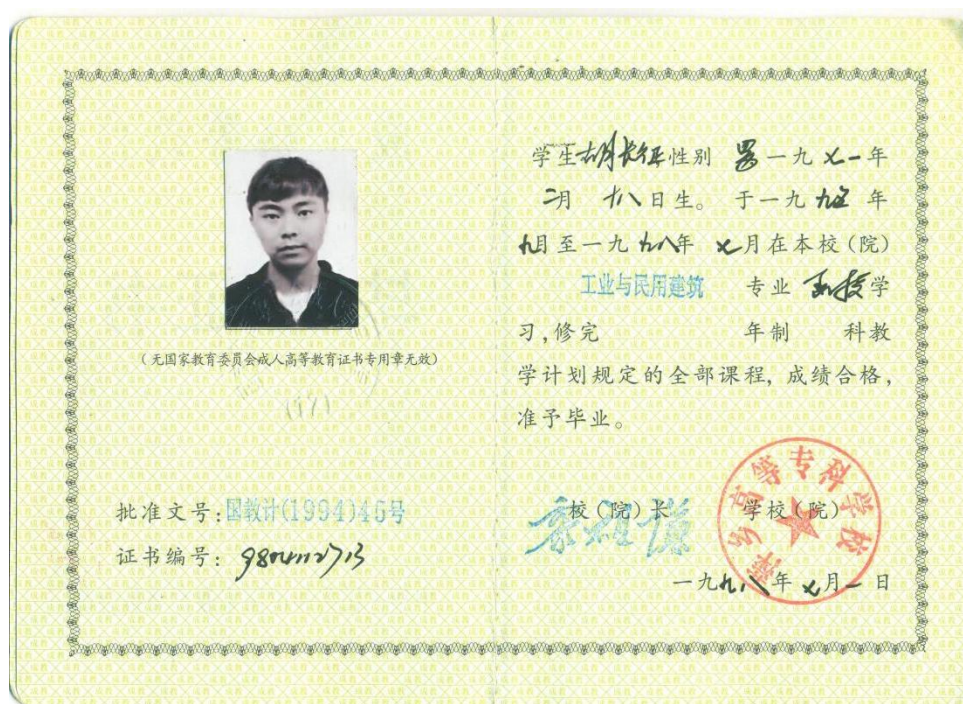 （无国家教育委员会成人高等教育证书专用章无效）
(17)
批准文号：国教计(1994)46号
证书编号：
学生胡长征性别 男一九七一年
二月 十八日生。于一九九五年
九月至一九九八年 七月在本校（院）
工业与民用建筑 专业 函授学
习，修完 年制 科教
学计划规定的全部课程，成绩合格，
准予毕业。
校（院）长 学校（院）
萍乡高等专科学校
一九九八年七月一日